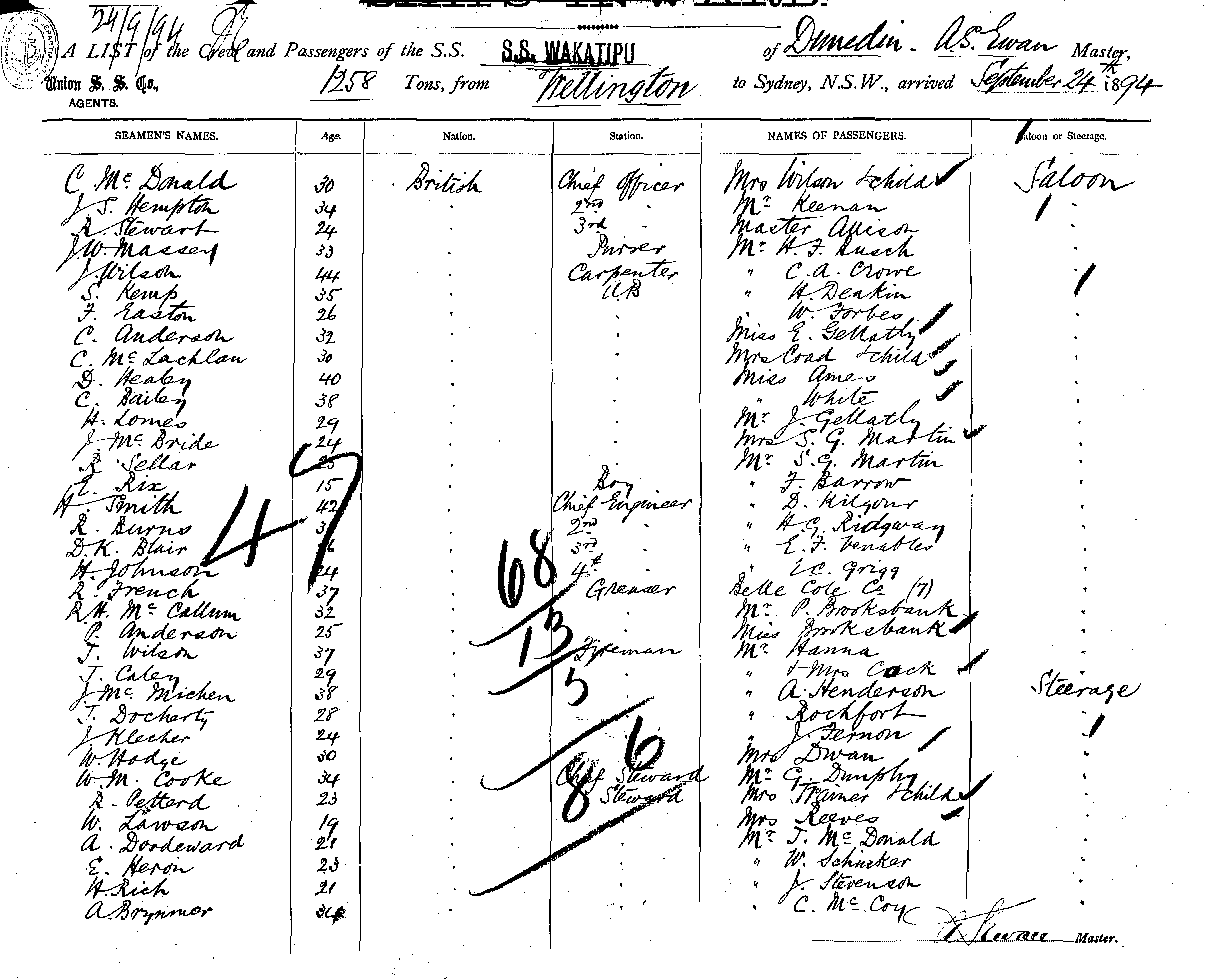 24/9/94
A LIST of the Crew and Passengers of the S.S. S.S. WAKATIPU of Dunedin. A.S. Ewan Master,
Union S. S. Co., 1258 Tons, from Wellington to Sydney, N.S.W., arrived September 24th 1894
AGENTS.
SEAMEN'S NAMES. Age. Nation. Station. NAMES OF PASSENGERS. Saloon or Steerage.
C. Mc Donald 30 British Chief Officer Mrs Wilson & child Saloon
J. S. Hempton 34 2nd Mr Keenan
R Stewart 24 3rd Master Allison
J.W. Massey 33 Purser Mr H. F. Rusch
J. Wilson 44 Carpenter " C. A. Crowe
S. Kemp 35 AB " H. Deakin
F. Easton 26 W. Forbes
C. Anderson 32 Miss E. Gellatly
C. Mc Lachlan 30 Mrs Coad & child
D. Healey 40 Miss Ames
C. Bailey 38 " White
H. Lomes 29 Mr J. Gellatly
J. Mc Bride 24 Mrs S. G. Martin
R Sellar 25 Mr S. G. Martin
Rix 15 Boy " F. Barrow
H. Smith 42 Chief Engineer " D. Kilgour
R. Burns 2nd " H. G. Ridgway
D. K. Blair 3rd " E. F. Venables
H. Johnson 24 4th " Grigg
R. French 37 Greaser Belle Cole Co (7)
R H. Mc Callum 32 Mr P. Brooksbank
P. Anderson 25 Miss Brooksbank
T. Wilson 37 Fireman Mr Hanna
T. Caley 29 " & Mrs Cock
J Mc Michen 38 " A. Henderson Steerage
T. Docherty 28 " Rochfort
J Klecher 24 " J. Fernon
W Hodge 30 Mrs Dwan
W. M. Cooke 34 Chief Steward Mr G. Dunphy
R. Petterd 23 Steward Mrs Trainer & child
W. Lawson 19 Mrs Reeves
A. Dordeward 21 Mr T. Mc Donald
E. Heron 23 " W. Schusker
H. Rich 21 " J. Stevenson
A Brynmor " C. Mc Coy
47
68
13
5
86
A S Ewan Master.